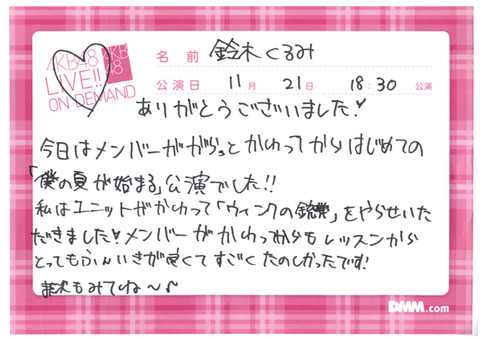 AKB48
LIVE!!
ON DEMAND
AKB
48
名前 鈴木くるみ
公演日 11月 21日 18:30 公演
ありがとうございました!
今日はメンバーががらっとかわってからはじめての
「僕の夏が始まる」公演でした!!
私はユニットがかわって「ウィンクの銃弾」をやらせいた
だきました♥メンバーがかわってからもレッスンから
とってもふんいきが良くてすごくたのしかったです!
また次もみてね〜♪
DMM.com